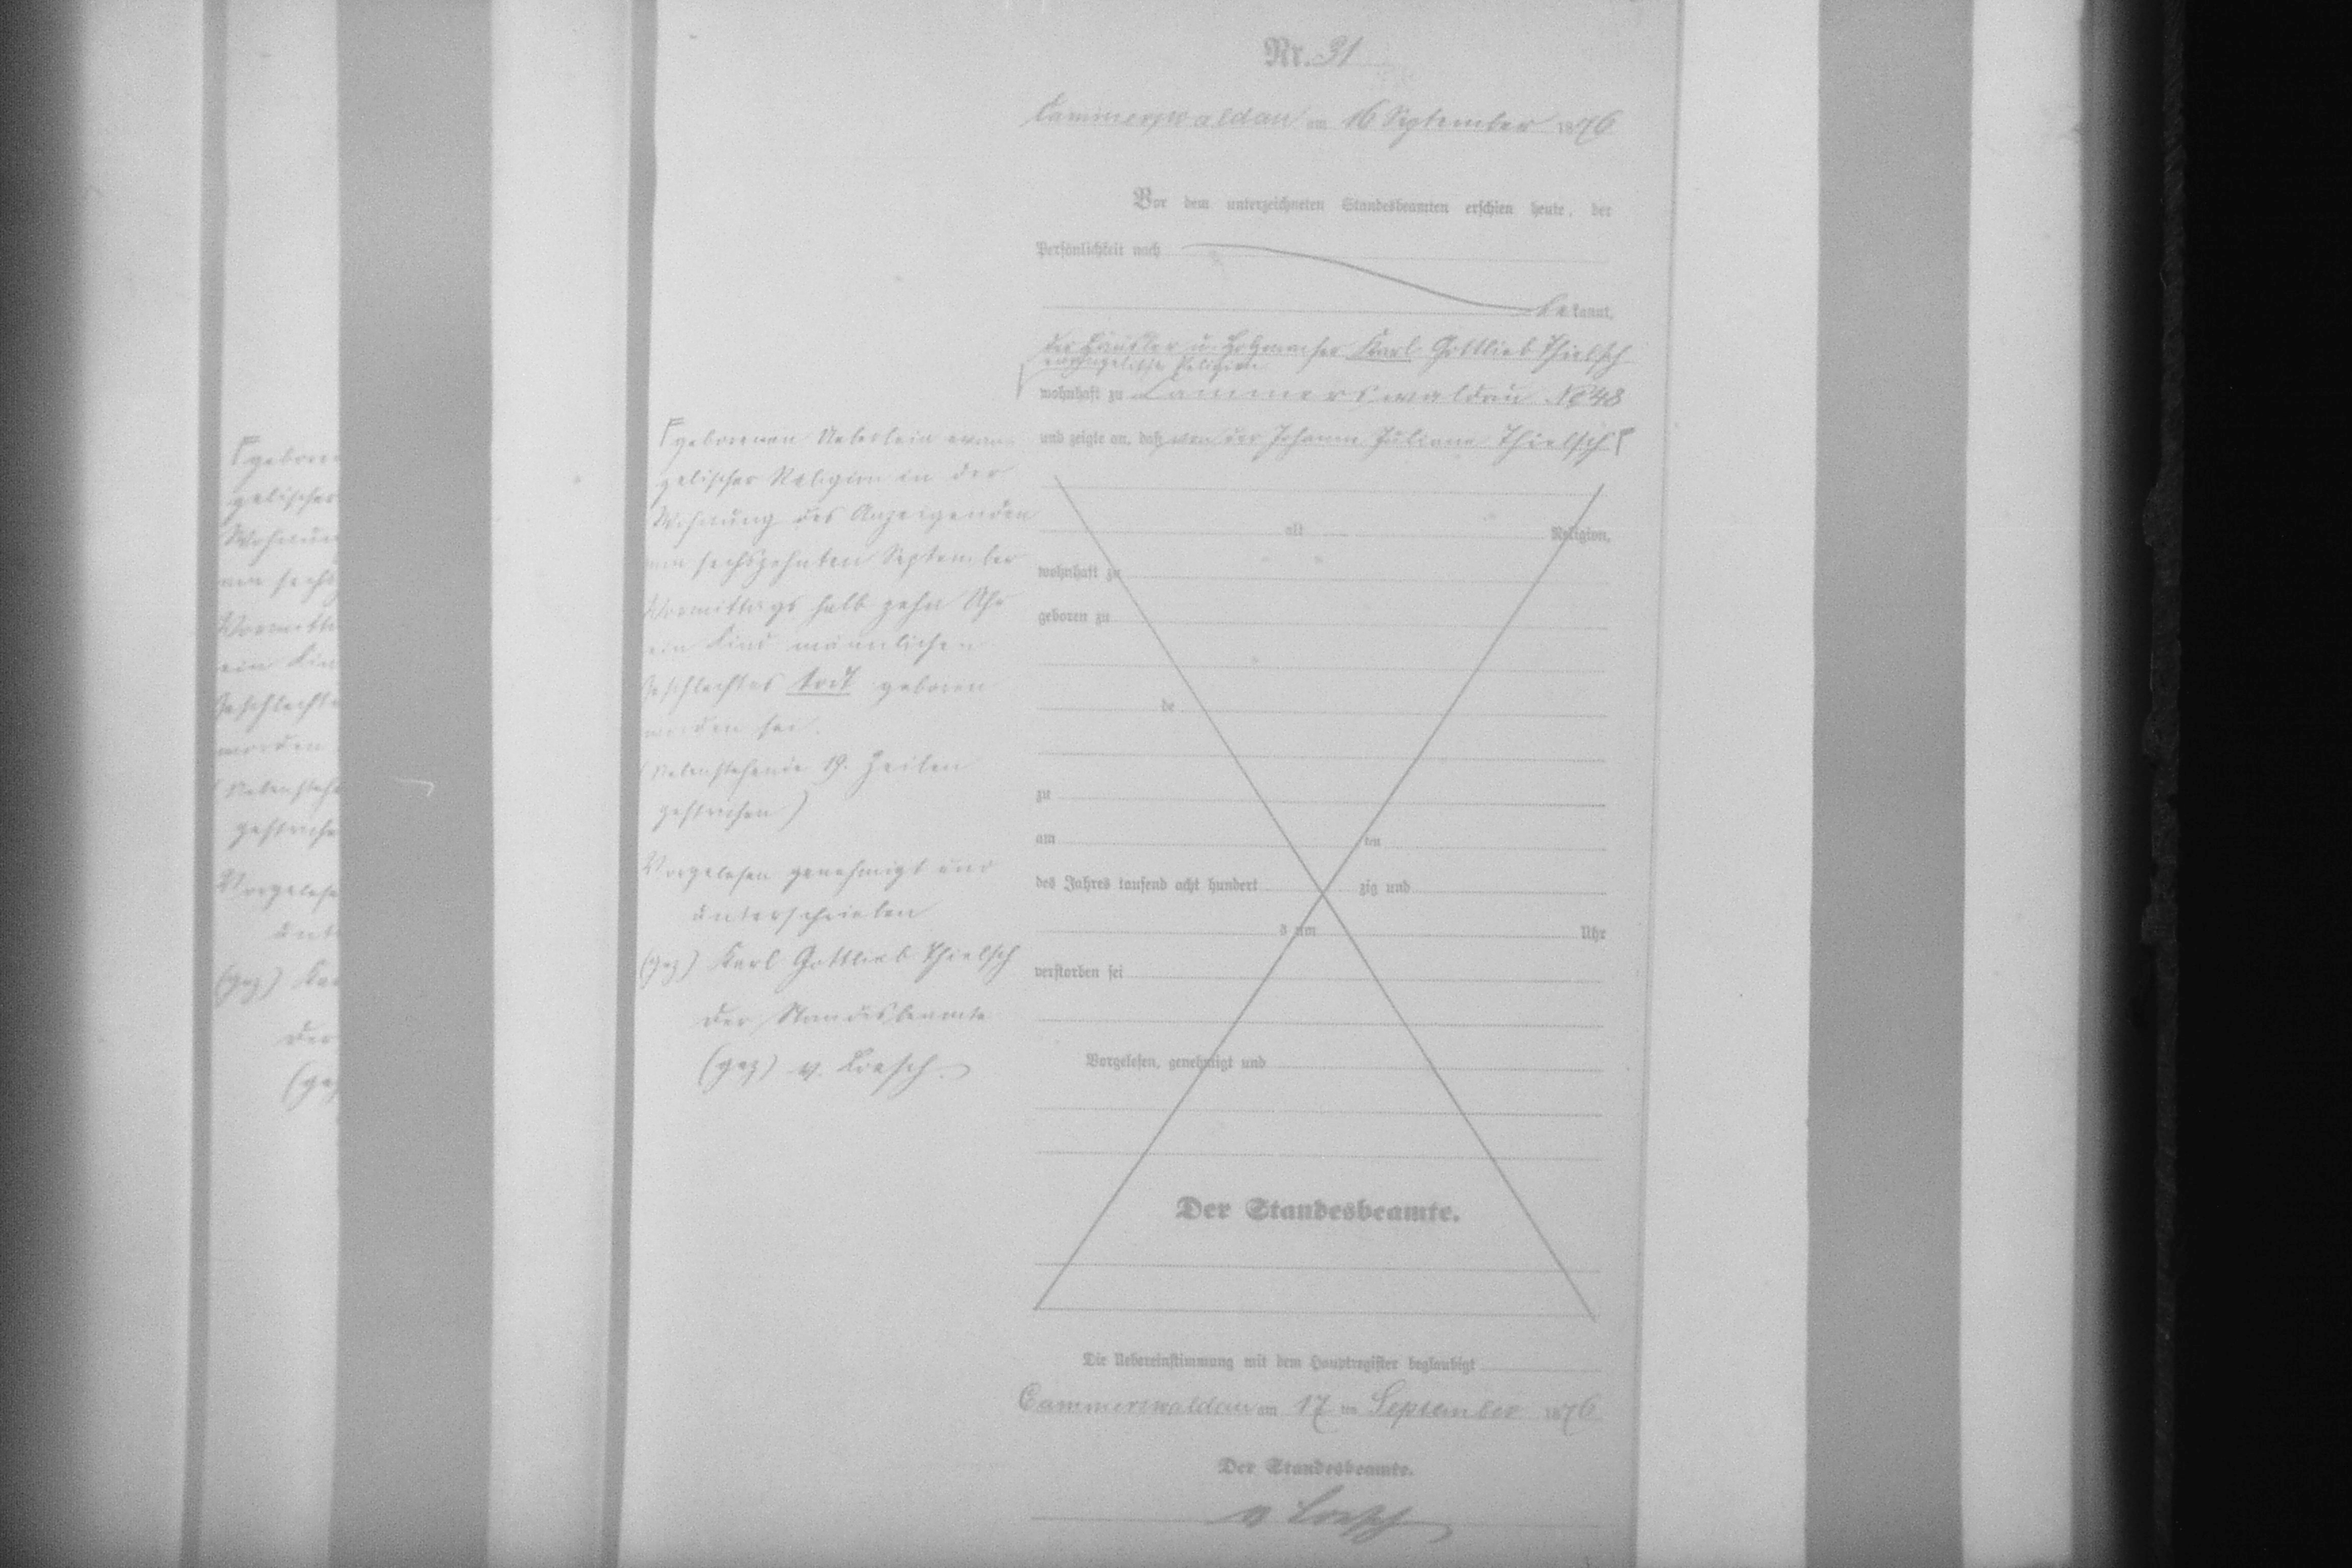 Nr. 31
Cammerswaldau am 16 September 1876
Vor dem unterzeichneten Standesbeamten erschien heute, der
Persönlichkeit nach
bekannt,
der Häusler u. Karl Gottlieb Thielsch
evangelischer Religion
wohnhaft zu Cammerswaldau No 48
und zeigte an, daß von der Johanne Juliane Thielsch Γ
Γ geborenen evan-
gelischer Religion in der
Wohnung des Anzeigenden
am sechszehnten September
Vormittags halb zehn Uhr
ein Kind männlichen
Geschlechtes todt geboren
worden sei.
(Nebenstehende 19. Zeilen
gestrichen)
Vorgelesen genehmigt und
unterschrieben
(gez) Karl Gottlieb Thielsch
Der Standesbeamte
(gez) v. Loesch.
alt Religion,
wohnhaft zu
geboren zu
de
zu
am ten
des Jahres tausend acht hundert zig und
s um Uhr
verstorben sei
Vorgelesen, genehmigt und
Der Standesbeamte.
Die Uebereinstimmung mit dem Hauptregister beglaubigt
Cammerswaldau am 17 ten September 1876
Der Standesbeamte.
v Loesch
Γ gebore
gelischer
Wohnun
am sechs
Vormitt
ein Kin
Geschlecht
worden
(Nebensteh
gestriche
Vorgelese
unt
(gez) Ka
Der
(ge